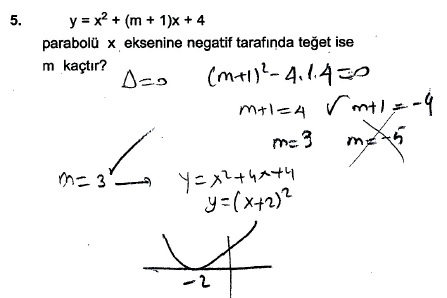 5. y = x² + (m + 1)x + 4
parabolü x eksenine negatif tarafında teğet ise
m kaçtır?
Δ=0 (m+1)²-4.1.4=0
m+1=4 √ m+1=-4
m=3 m=-5
m=3 → y=x²+4x+4
y=(x+2)²
-2